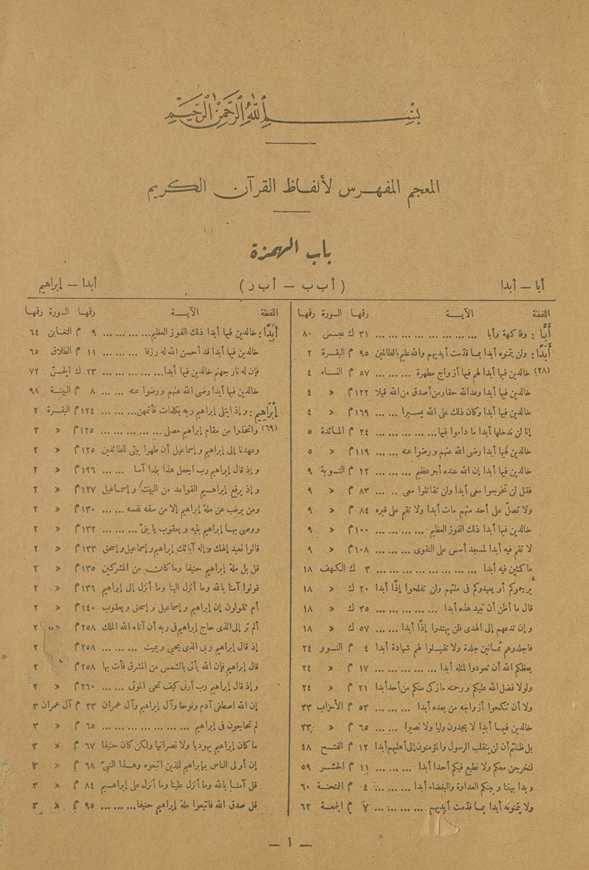 بسم الله الرحمن الرحيم
المعجم المفهرس لألفاظ القرآن الكريم
باب الهمزة
أبا – أبدا
( أ ب ب – أ ب ر )
أبدا – إبراهيم
اللفظة الآيــة رقمها السورة رقمها
أَبًّا : وفاكهة وأبا ... ٣١ ك عبس ٨٠
أَبَدًا : ولن يتمنوه أبدا بما قدّمت أيديهم والله عليم بالظالمين ٩٥ م البقرة ٢
(٢٨) خالدين فيها أبدا لهم فيها أزواج مطهرة ... ٥٧ م النساء ٤
خالدين فيها أبدا وعدالله حقا ومن أصدق من الله قيلا ١٢٢ م « ٤
خالدين فيها أبدا وكان ذلك على الله يسيرا ... ١٦٩ م « ٤
إنا لن ندخلها أبدا ما داموا فيها ... ٢٤ م المائدة ٥
خالدين فيها أبدا رضى الله عنهم ورضوا عنه ... ١١٩ م « ٥
خالدين فيها أبدا إن الله عنده أجر عظيم ... ٢٢ م التوبة ٩
فقل لن تخرجوا معى أبدا ولن تقاتلوا معى ... ٨٣ م « ٩
ولا تصلّ على أحد منهم مات أبدا ولا تقم على قبره ٨٤ م « ٩
خالدين فيها أبدا ذلك الفوز العظيم ... ١٠٠ م « ٩
لا تقم فيه أبدا لمسجد أسس على التقوى ... ١٠٨ م « ٩
ماكثين فيه أبدا ... ٣ ك الكهف ١٨
يرجموكم أو يعيدوكم فى ملتهم ولن تفلحوا إذًا أبدا ٢٠ ك « ١٨
قال ما أظن أن تبيد هذه أبدا ... ٣٥ ك « ١٨
وإن تدعهم إلى الهدى فلن يهتدوا إذًا أبدا ... ٥٧ ك « ١٨
فاجلدوهم ثمانين جلدة ولا تقبلوا لهم شهادة أبدا ٤ م النور ٢٤
يعظكم الله أن تعودوا لمثله أبدا ... ١٧ م « ٢٤
ولولا فضل الله عليكم ورحمته ما زكى منكم من أحد أبدا ٢١ م « ٢٤
ولا أن تنكحوا أزواجه من بعده أبدا ... ٥٣ م الأحزاب ٣٣
خالدين فيها أبدا لا يجدون وليا ولا نصيرا ... ٦٥ م « ٣٣
بل ظننتم أن لن ينقلب الرسول والمؤمنون إلى أهليهم أبدا ١٢ م الفتح ٤٨
لنخرجن معكم ولا نطيع فيكم أحدا أبدا ... ١١ م الحشر ٥٩
وبدا بيننا وبينكم العداوة والبغضاء أبدا ... ٤ م الممتحنة ٦٠
ولا يتمنونه أبدا بما قدّمت أيديهم ... ٧ م الجمعة ٦٢
اللفظة الآيــة رقمها السورة رقمها
أَبَدًا : خالدين فيها أبدا ذلك الفوز العظيم ... ٩ م التغابن ٦٤
خالدين فيها أبدا قد أحسن الله له رزقا ... ١١ م الطلاق ٦٥
فإن له نار جهنم خالدين فيها أبدا ... ٢٣ ك الجنّ ٧٢
خالدين فيها أبدا رضى الله عنهم ورضوا عنه ... ٨ م البينة ٩٨
إبراهيم : وإذ ابتلى إبراهيم ربه بكلمات فأتمهن ... ١٢٤ م البقرة ٢
(٦٩) واتخذوا من مقام إبراهيم مصلى ... ١٢٥ م « ٢
وعهدنا إلى إبراهيم وإسماعيل أن طهرا بيتى للطائفين ١٢٥ م « ٢
وإذ قال إبراهيم رب اجعل هذا بلدا آمنا ... ١٢٦ م « ٢
وإذ يرفع إبراهيم القواعد من البيت وإسماعيل ١٢٧ م « ٢
ومن يرغب عن ملة إبراهيم إلا من سفه نفسه ... ١٣٠ م « ٢
ووصى بها إبراهيم بنيه ويعقوب يا بنىّ ... ١٣٢ م « ٢
قالوا نعبد إلهك وإله آبائك إبراهيم وإسماعيل وإسحق ١٣٣ م « ٢
قل بل ملة إبراهيم حنيفا وما كان من المشركين ١٣٥ م « ٢
قولوا آمنا بالله وما أنزل إلينا وما أنزل إلى إبراهيم ١٣٦ م « ٢
أم تقولون إن إبراهيم وإسماعيل وإسحق ويعقوب ١٤٠ م « ٢
ألم تر إلى الذى حاج إبراهيم فى ربه أن آتاه الله الملك ٢٥٨ م « ٢
إذ قال إبراهيم ربى الذى يحيى ويميت ... ٢٥٨ م « ٢
قال إبراهيم فإن الله يأتى بالشمس من المشرق فأت بها ٢٥٨ م « ٢
وإذ قال إبراهيم رب أرنى كيف تحيى الموتى ... ٢٦٠ م « ٢
إن الله اصطفى آدم ونوحا وآل إبراهيم وآل عمران ٣٣ م آل عمران ٣
لم تحاجون فى إبراهيم ... ٦٥ م « ٣
ما كان إبراهيم يهوديا ولا نصرانيا ولكن كان حنيفا ٦٧ م « ٣
إن أولى الناس بإبراهيم للذين اتبعوه وهذا النبىّ ٦٨ م « ٣
قل آمنا بالله وما أنزل علينا وما أنزل على إبراهيم ٨٤ م « ٣
قل صدق الله فاتبعوا ملة إبراهيم حنيفا ... ٩٥ م « ٣
– ١ –